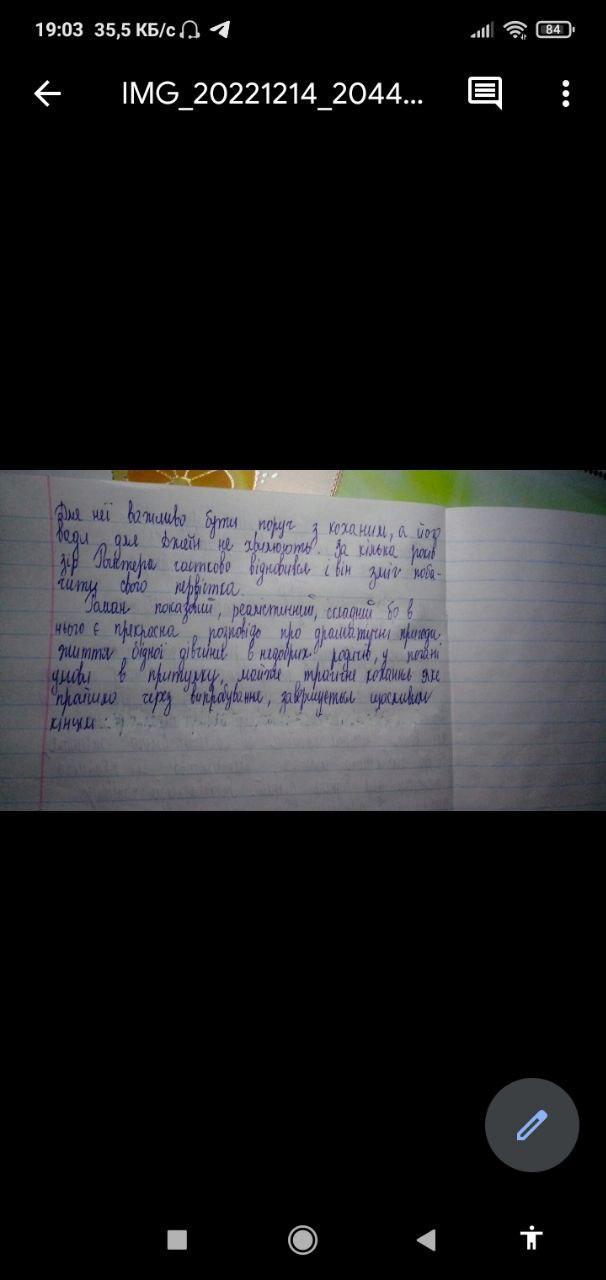 19:03 35,5 КБ/с 84
IMG_20221214_2044...
Для неї важливо бути поруч з коханим, а його
вади для Джейн не хвилюють. За кілька років
зір Рочестера частково відновився і він зміг поба-
чити свого первістка.
Роман показовий, реалістичний, складний бо в
нього є прекрасна розповідь про драматичні пригоди
життя бідної дівчини в недобрих родичів, у погані
умови в притулку, майже трагічне кохання яке
пройшло через випробування, завершується щасливим
кінцем.